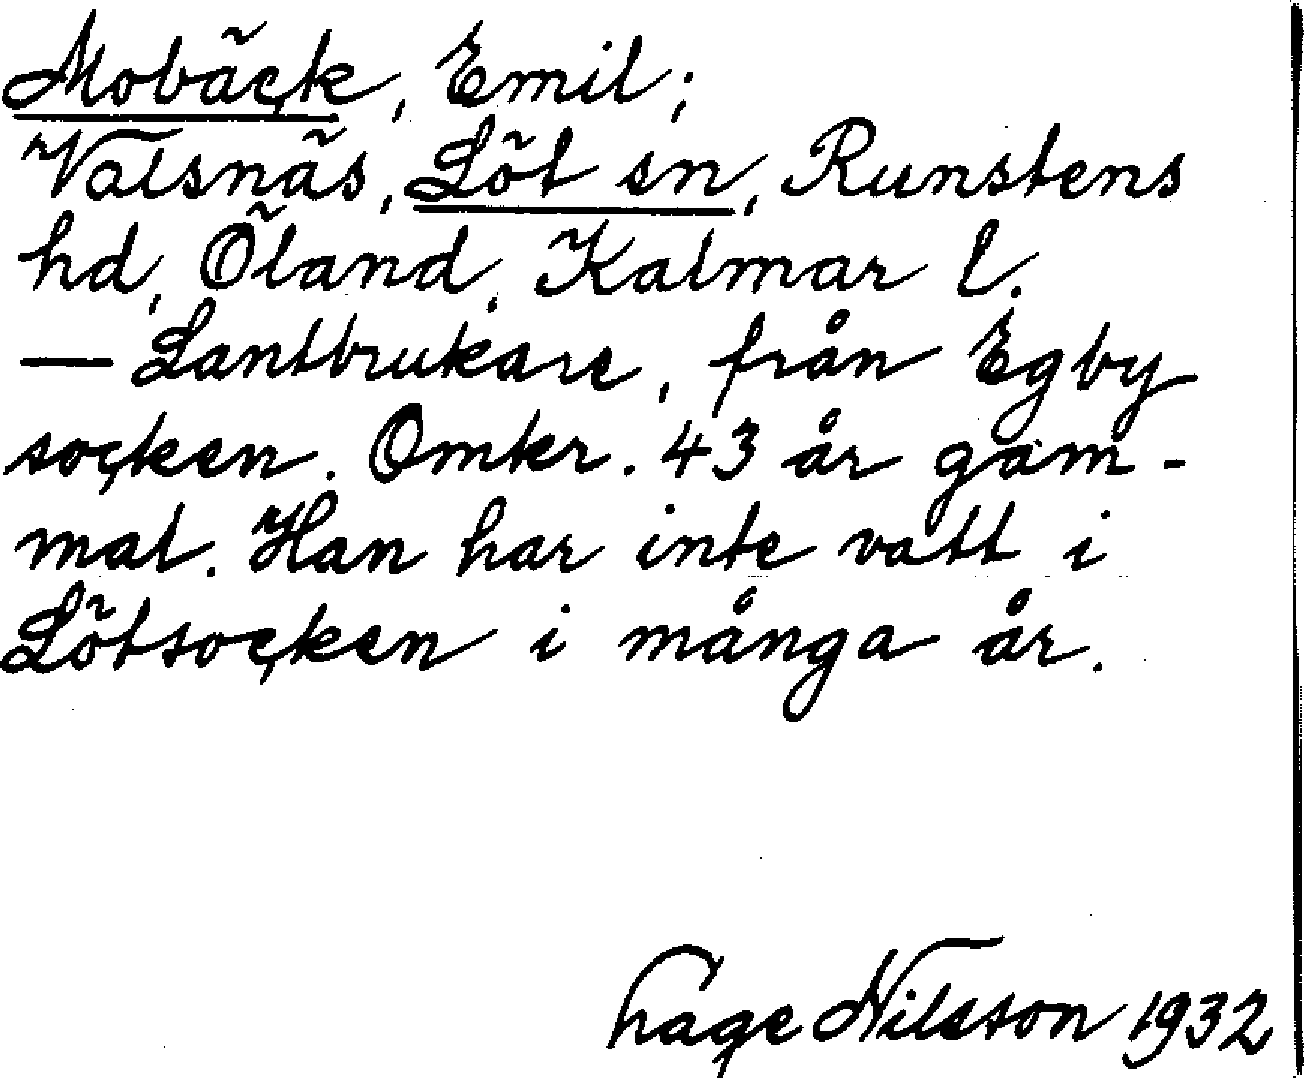 Mobäck, Emil;
Valsnäs, Löt sn, Runstens
hd, Öland, Kalmar l.
— Lantbrukare, från Egby
socken. Omkr. 43 år gam-
mal. Han har inte vatt i
Lötsocken i många år.
Hage Nilsson 1932